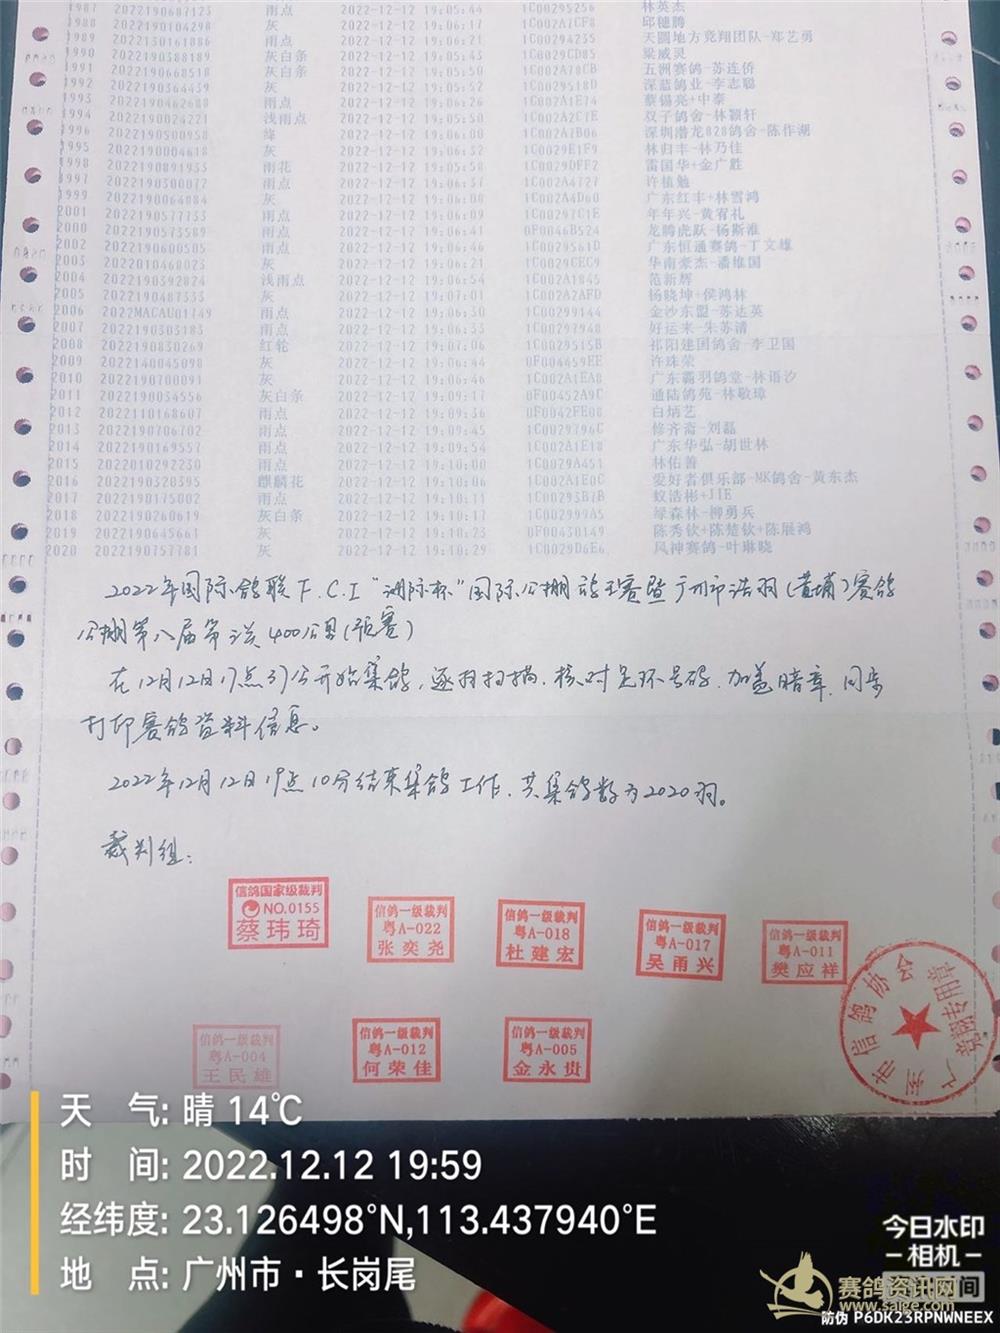 1987 2022190687123 雨点 2022-12-12 19:05:44 1C00295256 林英杰
1988 2022190104298 灰 2022-12-12 19:06:17 1C002A7CF8 邱穗腾
1989 2022130161886 雨点 2022-12-12 19:06:23 1C00294235 天圆地方竞翔团队-郑艺勇
2022190388189 灰白条 2022-12-12 19:05:43 1C0029CD85 梁威灵
1991 2022190668518 灰白条 2022-12-12 19:05:50 1C002A78CB 五洲赛鸽-苏连侨
1992 2022190364439 灰 2022-12-12 19:05:52 1C0029518D 深蓝鸽业-李志聪
1993 2022190462688 雨点 2022-12-12 19:06:26 1C002A1E74 蔡锡亮+中泰
1994 2022190024221 浅雨点 2022-12-12 19:05:50 1C002A2C7E 双子鸽舍-林颖轩
1996 2022190500958 绛 2022-12-12 19:06:00 1C002A7B06 深圳潜龙828鸽舍-陈作湖
1995 2022190004618 灰 2022-12-12 19:06:32 1C0029E1F9 林归丰-林乃佳
1998 2022190891933 雨花 2022-12-12 19:05:58 1C0029DFF2 雷国华+金广胜
1997 2022190300072 雨点 2022-12-12 19:06:37 1C002A4727 许植勉
1999 2022190064884 灰 2022-12-12 19:06:08 1C002A4D60 广东红丰+林雪鸿
2001 2022190577733 雨点 2022-12-12 19:06:09 1C00297C1E 年年兴-黄宥礼
2000 2022190573589 雨点 2022-12-12 19:06:41 0F0046B524 龙腾虎跃-杨斯淮
2002 2022190600505 雨点 2022-12-12 19:06:46 1C0029561D 广东恒通赛鸽-丁文雄
2003 2022010468023 灰 2022-12-12 19:06:21 1C0029CEC9 华南豪杰-潘维国
2004 2022190392824 浅雨点 2022-12-12 19:06:54 1C002A1845 范新辉
2005 2022190487333 灰 2022-12-12 19:07:01 1C002A2AFD 杨晓坤+侯鸿林
2006 2022MACAU01749 雨点 2022-12-12 19:06:30 1C00299144 金沙东盟-苏达英
2007 2022190303183 雨点 2022-12-12 19:06:33 1C00297948 好运来-朱苏清
2008 2022190830269 红轮 2022-12-12 19:07:06 1C0029515B 祁阳建国鸽舍-李卫国
2009 2022140045098 灰 2022-12-12 19:06:44 0F004659EE 许珠荣
2010 2022190700091 灰 2022-12-12 19:06:46 1C002A1EA8 广东霸羽鸽堂-林语汐
2011 2022190034556 灰白条 2022-12-12 19:09:17 0F00452A9C 通陆鸽苑-林敬璋
2012 2022110168607 雨点 2022-12-12 19:09:36 0F0042FE08 白炳艺
2013 2022190706702 雨点 2022-12-12 19:09:45 1C0029796C 修齐斋-刘磊
2014 2022190169557 雨点 2022-12-12 19:09:54 1C002A1E18 广东华弘-胡世林
2015 2022010292230 雨点 2022-12-12 19:10:00 1C0029A451 林佑善
2016 2022190320395 麒麟花 2022-12-12 19:10:06 1C002A1E0C 爱好者俱乐部-MK鸽舍-黄东杰
2017 2022190175002 雨点 2022-12-12 19:10:11 1C00293B7B 蚁浩彬+JIE
2018 2022190260619 灰白条 2022-12-12 19:10:17 1C002999A5 绿森林-柳勇兵
2019 2022190645661 灰 2022-12-12 19:10:23 0F00430149 陈秀钦+陈楚钦+陈展鸿
2020 2022190757781 灰 2022-12-12 19:10:29 1C0029D6E6 风神赛鸽-叶琳晓
2022年国际鸽联F.C.I“洲际杯”国际公棚鸽王赛暨广州市浩羽(黄埔)赛鸽
公棚第八届第二关400公里(预赛)
在12月12日17点37分开始集鸽,逐羽扫描、核对足环号码、加盖暗章、同步
打印赛鸽资料信息。
2022年12月12日19点10分结束集鸽工作,共集鸽数为2020羽。
裁判组:
信鸽国家级裁判
NO.0155
蔡玮琦
信鸽一级裁判
粤A-022
张奕尧
信鸽一级裁判
粤A-018
杜建宏
信鸽一级裁判
粤A-017
吴甬兴
信鸽一级裁判
粤A-011
樊应祥
信鸽一级裁判
粤A-004
王民雄
信鸽一级裁判
粤A-012
何荣佳
信鸽一级裁判
粤A-005
金永贵
广州市信鸽协会
竞翔专用章
天 气: 晴 14℃
时 间: 2022.12.12 19:59
经纬度: 23.126498°N,113.437940°E
地 点: 广州市·长岗尾
今日水印
-相机-
赛鸽资讯网
www.saige.com
防伪 P6DK23RPNWNEEX